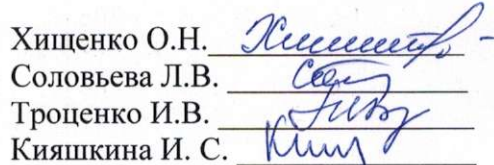 Хищенко О.Н.
Соловьева Л.В.
Троценко И.В.
Кияшкина И. С.